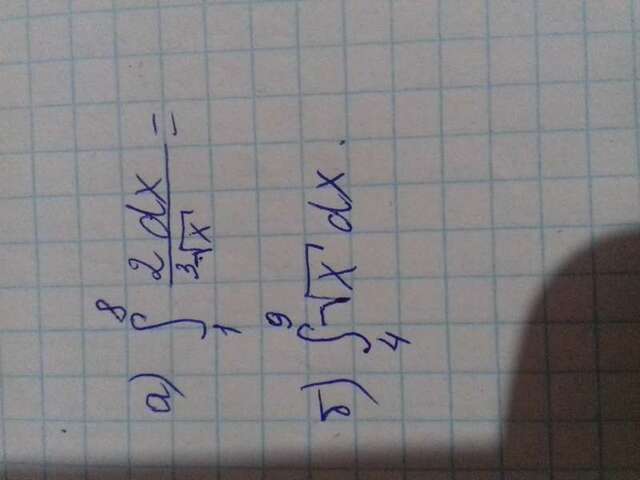 а) ∫₁⁸ 2dx/∛x =
б) ∫₄⁹ √x dx.